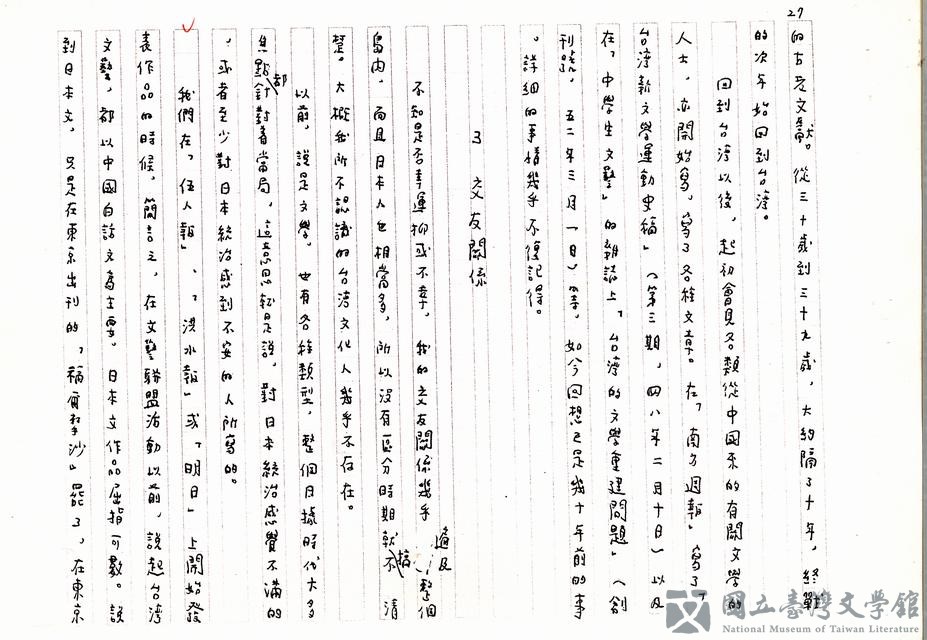 27
的古老文獻。從三十歲到三十九歲，大約隔了十年，終戰
的次年始回到台灣。
回到台灣以後，起初會見各類從中國來的有關文學的
人士，亦開始寫，寫了各種文章。在「南方週報」寫了「
台灣新文學運動史稿」（第三期，四八年二月十日）以及
在「中學生文藝」的雜誌上，「台灣的文學重建問題」（創
刊號，五二年三月一日）等。如今回想已是幾十年前的事
。詳細的事情幾乎不復記得。
3 交友關係
不知是否幸運抑或不幸，我的交友關係幾乎遍及整個
島內，而且日本人也相當多，所以沒有區分時期就搞不清
楚。大概我所不認識的台灣文化人幾乎不存在。
以前，說是文學，也有各種類型，整個日據時代大多
焦點都針對着當局，這意思就是說，對日本統治感覺不滿的
，或者至少對日本統治感到不安的人所寫的。
我們在「伍人報」、「洪水報」或「明日」上開始發
表作品的時候，簡言之，在文藝聯盟活動以前，說起台灣
文藝，都以中國白話文為主要。日本文作品屈指可數。說
到日本文，只是在東京出刊的「福爾摩沙」罷了，在東京
國立臺灣文學館
National Museum of Taiwan Literature